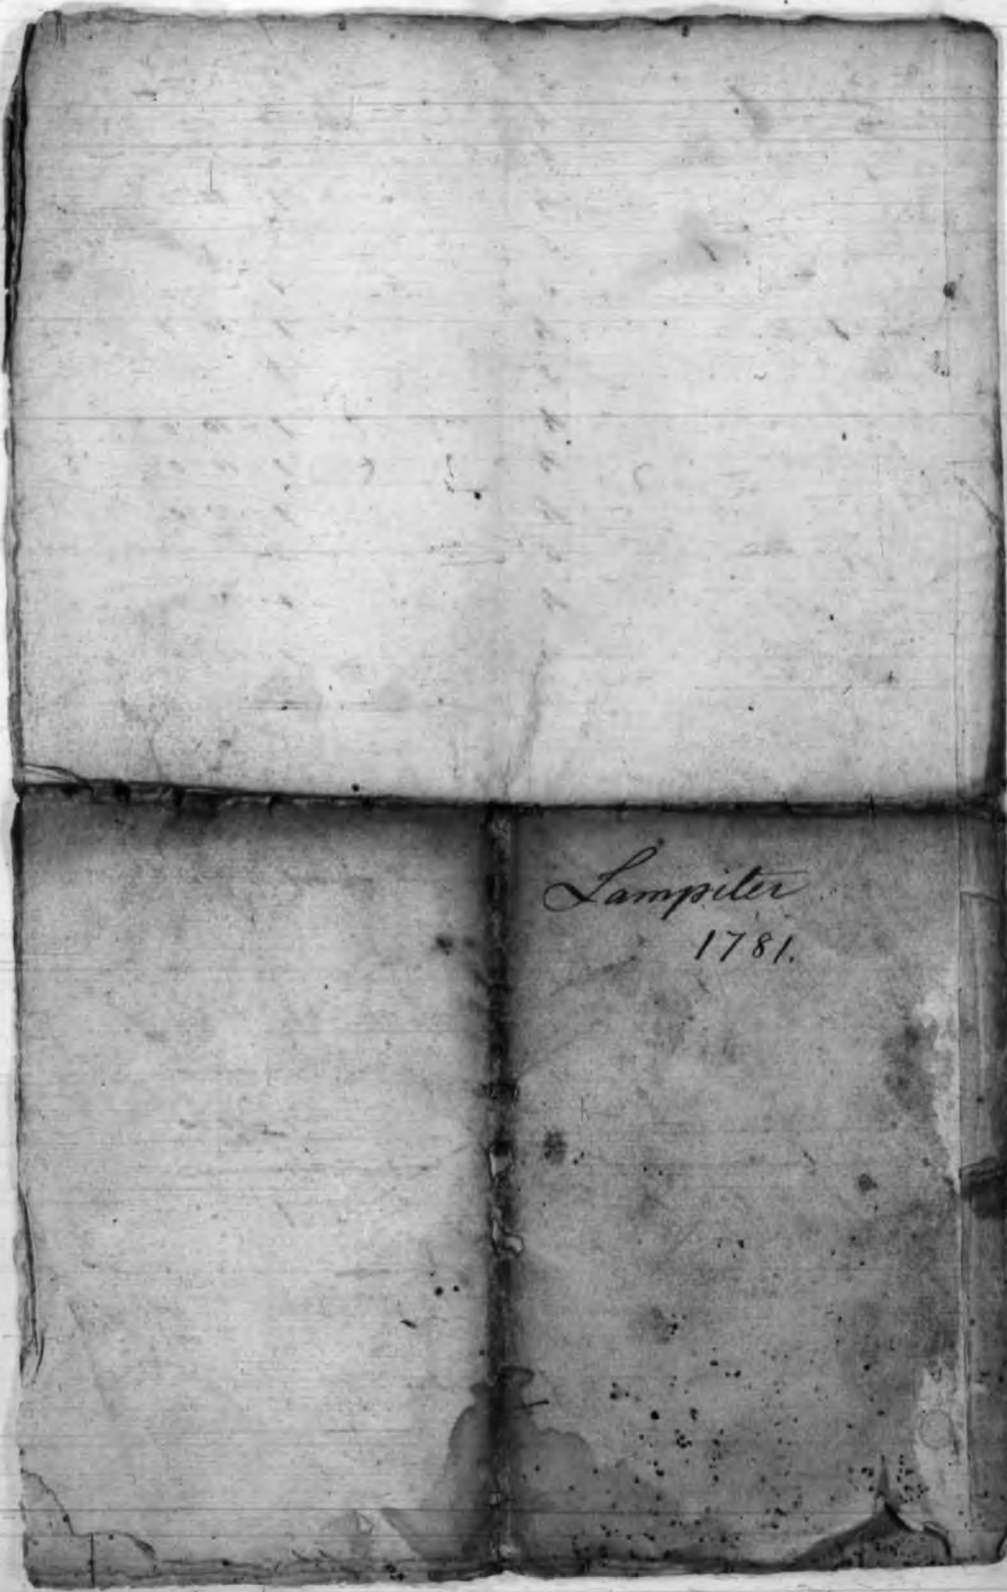 Lampiter
1781.